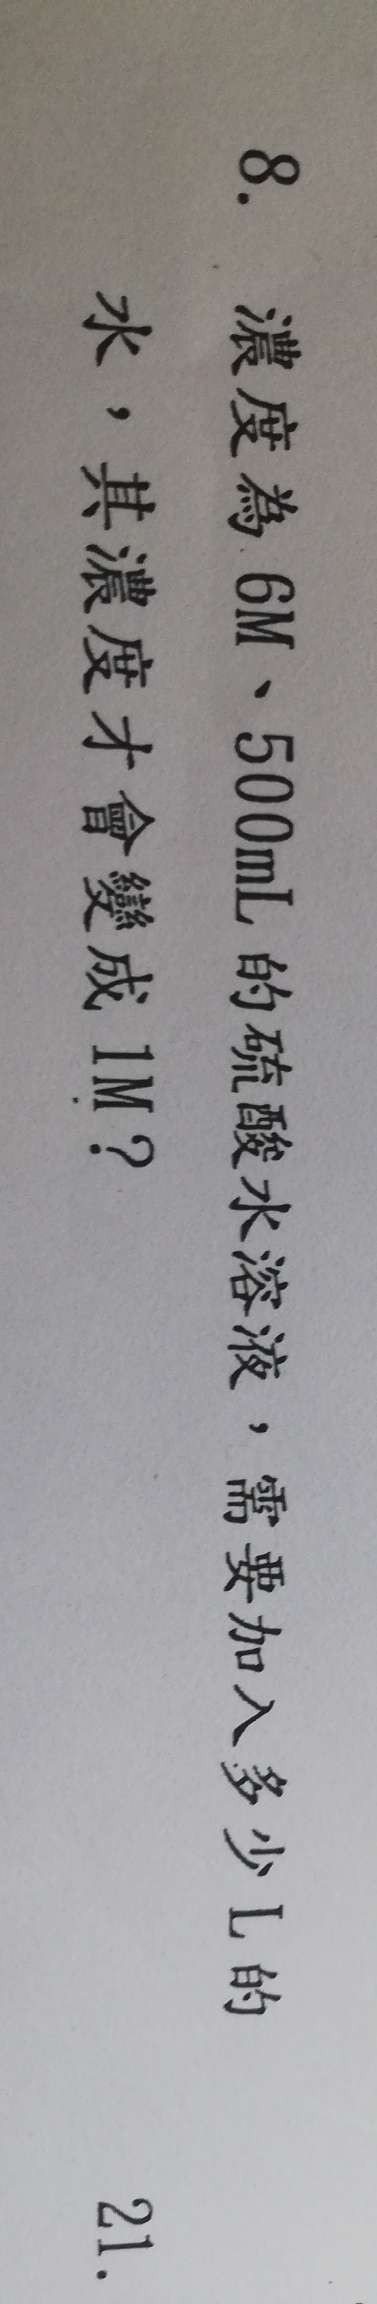 8. 濃度為 6M、500mL 的硫酸水溶液，需要加入多少 L 的
水，其濃度才會變成 1M？
21.